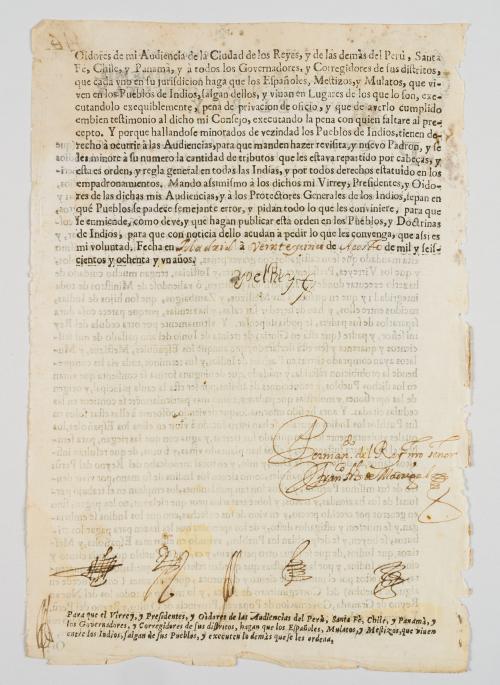 Oidores de mi Audiencia de la Ciudad de los Reyes, y de las demàs del Perù, Santa
Fè, Chile, y Panamà, y à todos los Governadores, y Corregidores de sus distritos,
que cada vno en su jurisdicion haga que los Españoles, Mestizos, y Mulatos, que vi-
ven en los Pueblos de Indios, salgan dellos, y viuan en Lugares de los que lo son, exe-
cutandolo exequiblemente, pena de privacion de oficio, y que de averlo cumplido
embien testimonio al dicho mi Consejo, executando la pena con quien faltare al pre-
cepto. Y porque hallandose minorados de vezindad los Pueblos de Indios, tienen de-
recho à ocurrir à las Audiencias, para que manden hazer revisita, y nuevo Padron, y se
les minore à su numero la cantidad de tributos que les estava repartido por cabeças, y
està es orden, y regla general en todas las Indias, y por todos derechos estatuido en los
empadronamientos. Mando assimismo à los dichos mi Virrey, Presidentes, y Oido-
res de las dichas mis Audiencias, y à los Protectores Generales de los Indios, sepan en
què Pueblos se padece semejante error, y pidan todo lo que les conviniere, para que
se enmiende, como deve, y que hagan publicar esta orden en los Pueblos, y Doctrinas
de Indios, para que con noticia dello acudan à pedir lo que les convenga, que assi es
mi voluntad, Fecha en Madrid à Veinte y uno de Agosto de mil y seis-
cientos y ochenta y vn años.
Yo el Rey
Por man.do del Rey nro señor
Para que el Virrey, y Presidentes, y Oidores de las Audiencias del Perù, Santa Fè, Chile, y Panamà, y
los Governadores, y Corregidores de sus distritos, hagan que los Españoles, Mulatos, y Mestizos, que viuen
entre los Indios, salgan de sus Pueblos, y executen lo demàs que se les ordena.